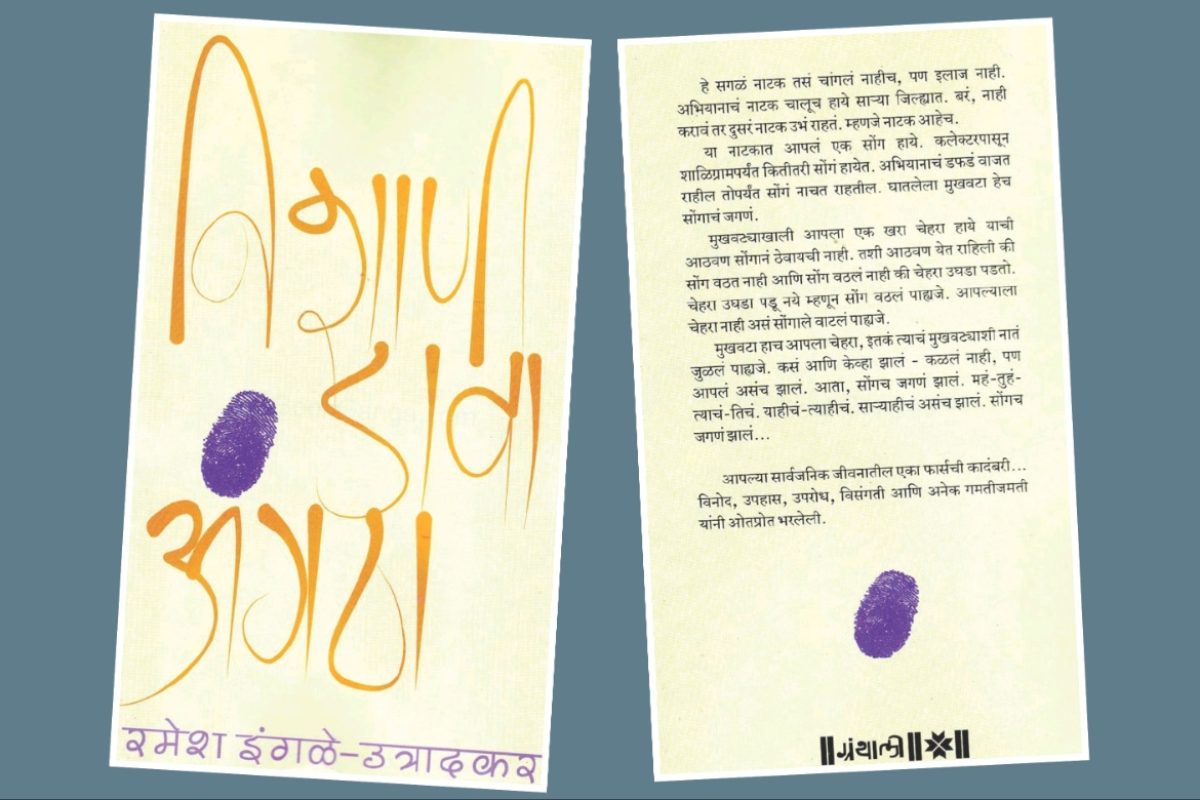 निशाणी
डावा
अंगठा
रमेश इंगळे-उत्रादकर
हे सगळं नाटक तसं चांगलं नाहीच, पण इलाज नाही.
अभियानाचं नाटक चालूच हाये साऱ्या जिल्ह्यात. बरं, नाही
करावं तर दुसरं नाटक उभं राहतं. म्हणजे नाटक आहेच.
या नाटकात आपलं एक सोंग हाये. कलेक्टरपासून
शाळिग्रामपर्यंत कितीतरी सोंगं हायेत. अभियानाचं डफडं वाजत
राहील तोपर्यंत सोंगं नाचत राहतील. घातलेला मुखवटा हेच
सोंगाचं जगणं.
मुखवट्याखाली आपला एक खरा चेहरा हाये याची
आठवण सोंगानं ठेवायची नाही. तशी आठवण येत राहिली की
सोंग वठत नाही आणि सोंग वठलं नाही की चेहरा उघडा पडतो.
चेहरा उघडा पडू नये म्हणून सोंग वठलं पाह्यजे. आपल्याला
चेहरा नाही असं सोंगाले वाटलं पाह्यजे.
मुखवटा हाच आपला चेहरा, इतकं त्याचं मुखवट्याशी नातं
जुळलं पाह्यजे. कसं आणि केव्हा झालं - कळलं नाही, पण
आपलं असंच झालं. आता, सोंगच जगणं झालं. महं-तुहं-
त्याचं-तिचं. याहीचं-त्याहीचं. साऱ्याहीचं असंच झालं. सोंगच
जगणं झालं...
आपल्या सार्वजनिक जीवनातील एका फार्सची कादंबरी...
विनोद, उपहास, उपरोध, विसंगती आणि अनेक गमतीजमती
यांनी ओतप्रोत भरलेली.
॥ग्रंथाली॥ ॥